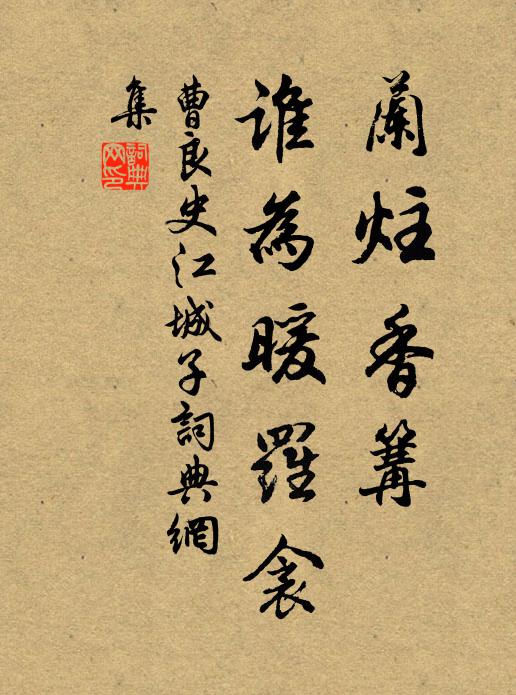 蘭炷香篝
誰為暖羅衾
曹良史江城子詞典網
集
詞典网印